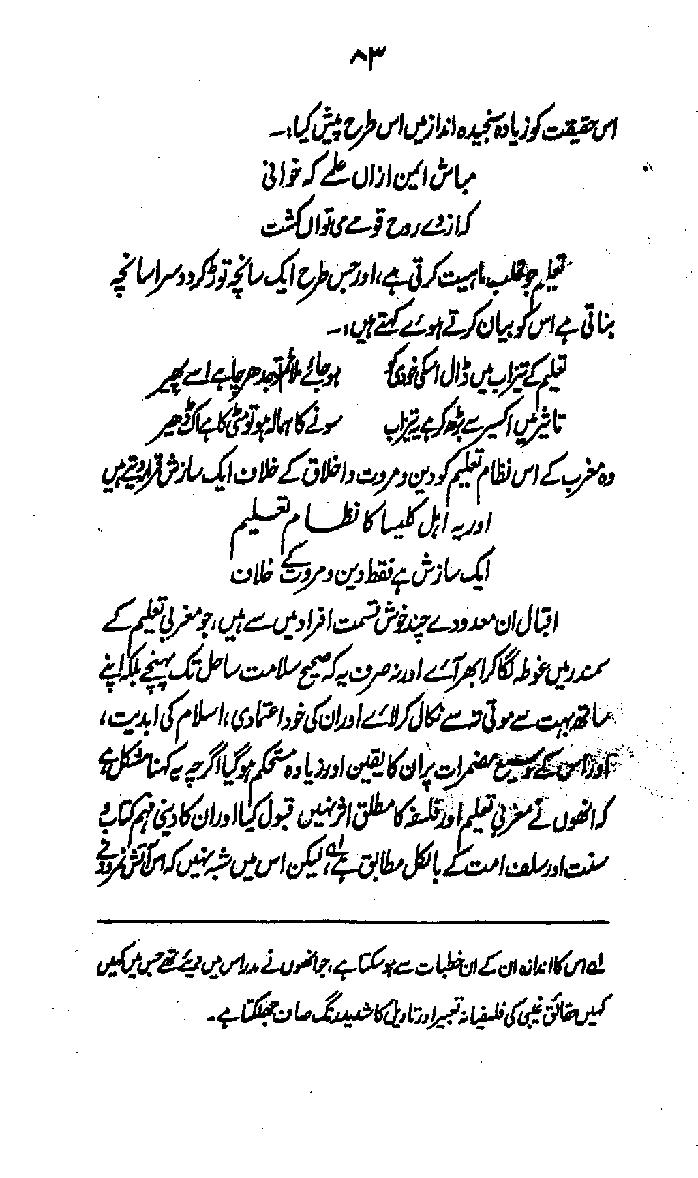 ۸۳
اس حقیقت کو زیادہ سنجیدہ انداز میں اس طرح پیش کیا:۔
مباش ایمن ازاں علمے کہ خوانی
کہ از وے روح قومے می تواں کشت
تعلیم جو قلب ماہیت کرتی ہے، اور جس طرح ایک سانچہ توڑ کر دوسرا سانچہ
بناتی ہے اس کو بیان کرتے ہوئے کہتے ہیں:۔
تعلیم کے تیزاب میں ڈال اسکی خودی کو ہو جائے ملائم تو جدھر چاہے اسے پھیر
تاثیر میں اکسیر سے بڑھ کر ہے یہ تیزاب سونے کا ہمالہ ہو تو مٹی کا ہے اک ڈھیر
وہ مغرب کے اس نظام تعلیم کو دین و مروت و اخلاق کے خلاف ایک سازش قرار دیتے ہیں
اور یہ اہل کلیسا کا نظام تعلیم
ایک سازش ہے فقط دین و مروت کے خلاف
اقبال ان معدودے چند خوش قسمت افراد میں سے ہیں، جو مغربی تعلیم کے
سمندر میں غوطہ لگا کر ابھر آئے اور نہ صرف یہ کہ صحیح سلامت ساحل تک پہنچے بلکہ اپنے
ساتھ بہت سے موتی تہ سے نکال کر لائے اور ان کی خود اعتمادی، اسلام کی ابدیت،
اور اس کے وسیع مضمرات پر ان کا یقین اور زیادہ مستحکم ہو گیا اگرچہ یہ کہنا مشکل ہے
کہ انھوں نے مغربی تعلیم اور فلسفہ کا مطلق اثر نہیں قبول کیا اور ان کا دینی فہم کتاب و
سنت اور سلف امت کے بالکل مطابق ہے لے، لیکن اس میں شبہ نہیں کہ اس آتش نمرود نے
لے اس کا اندازہ ان کے ان خطبات سے ہو سکتا ہے، جو انھوں نے مدراس میں دیئے تھے جس میں کہیں
کہیں حقائق غیبی کی فلسفیانہ تعبیر اور تاویل کا شدید رنگ صاف جھلکتا ہے۔